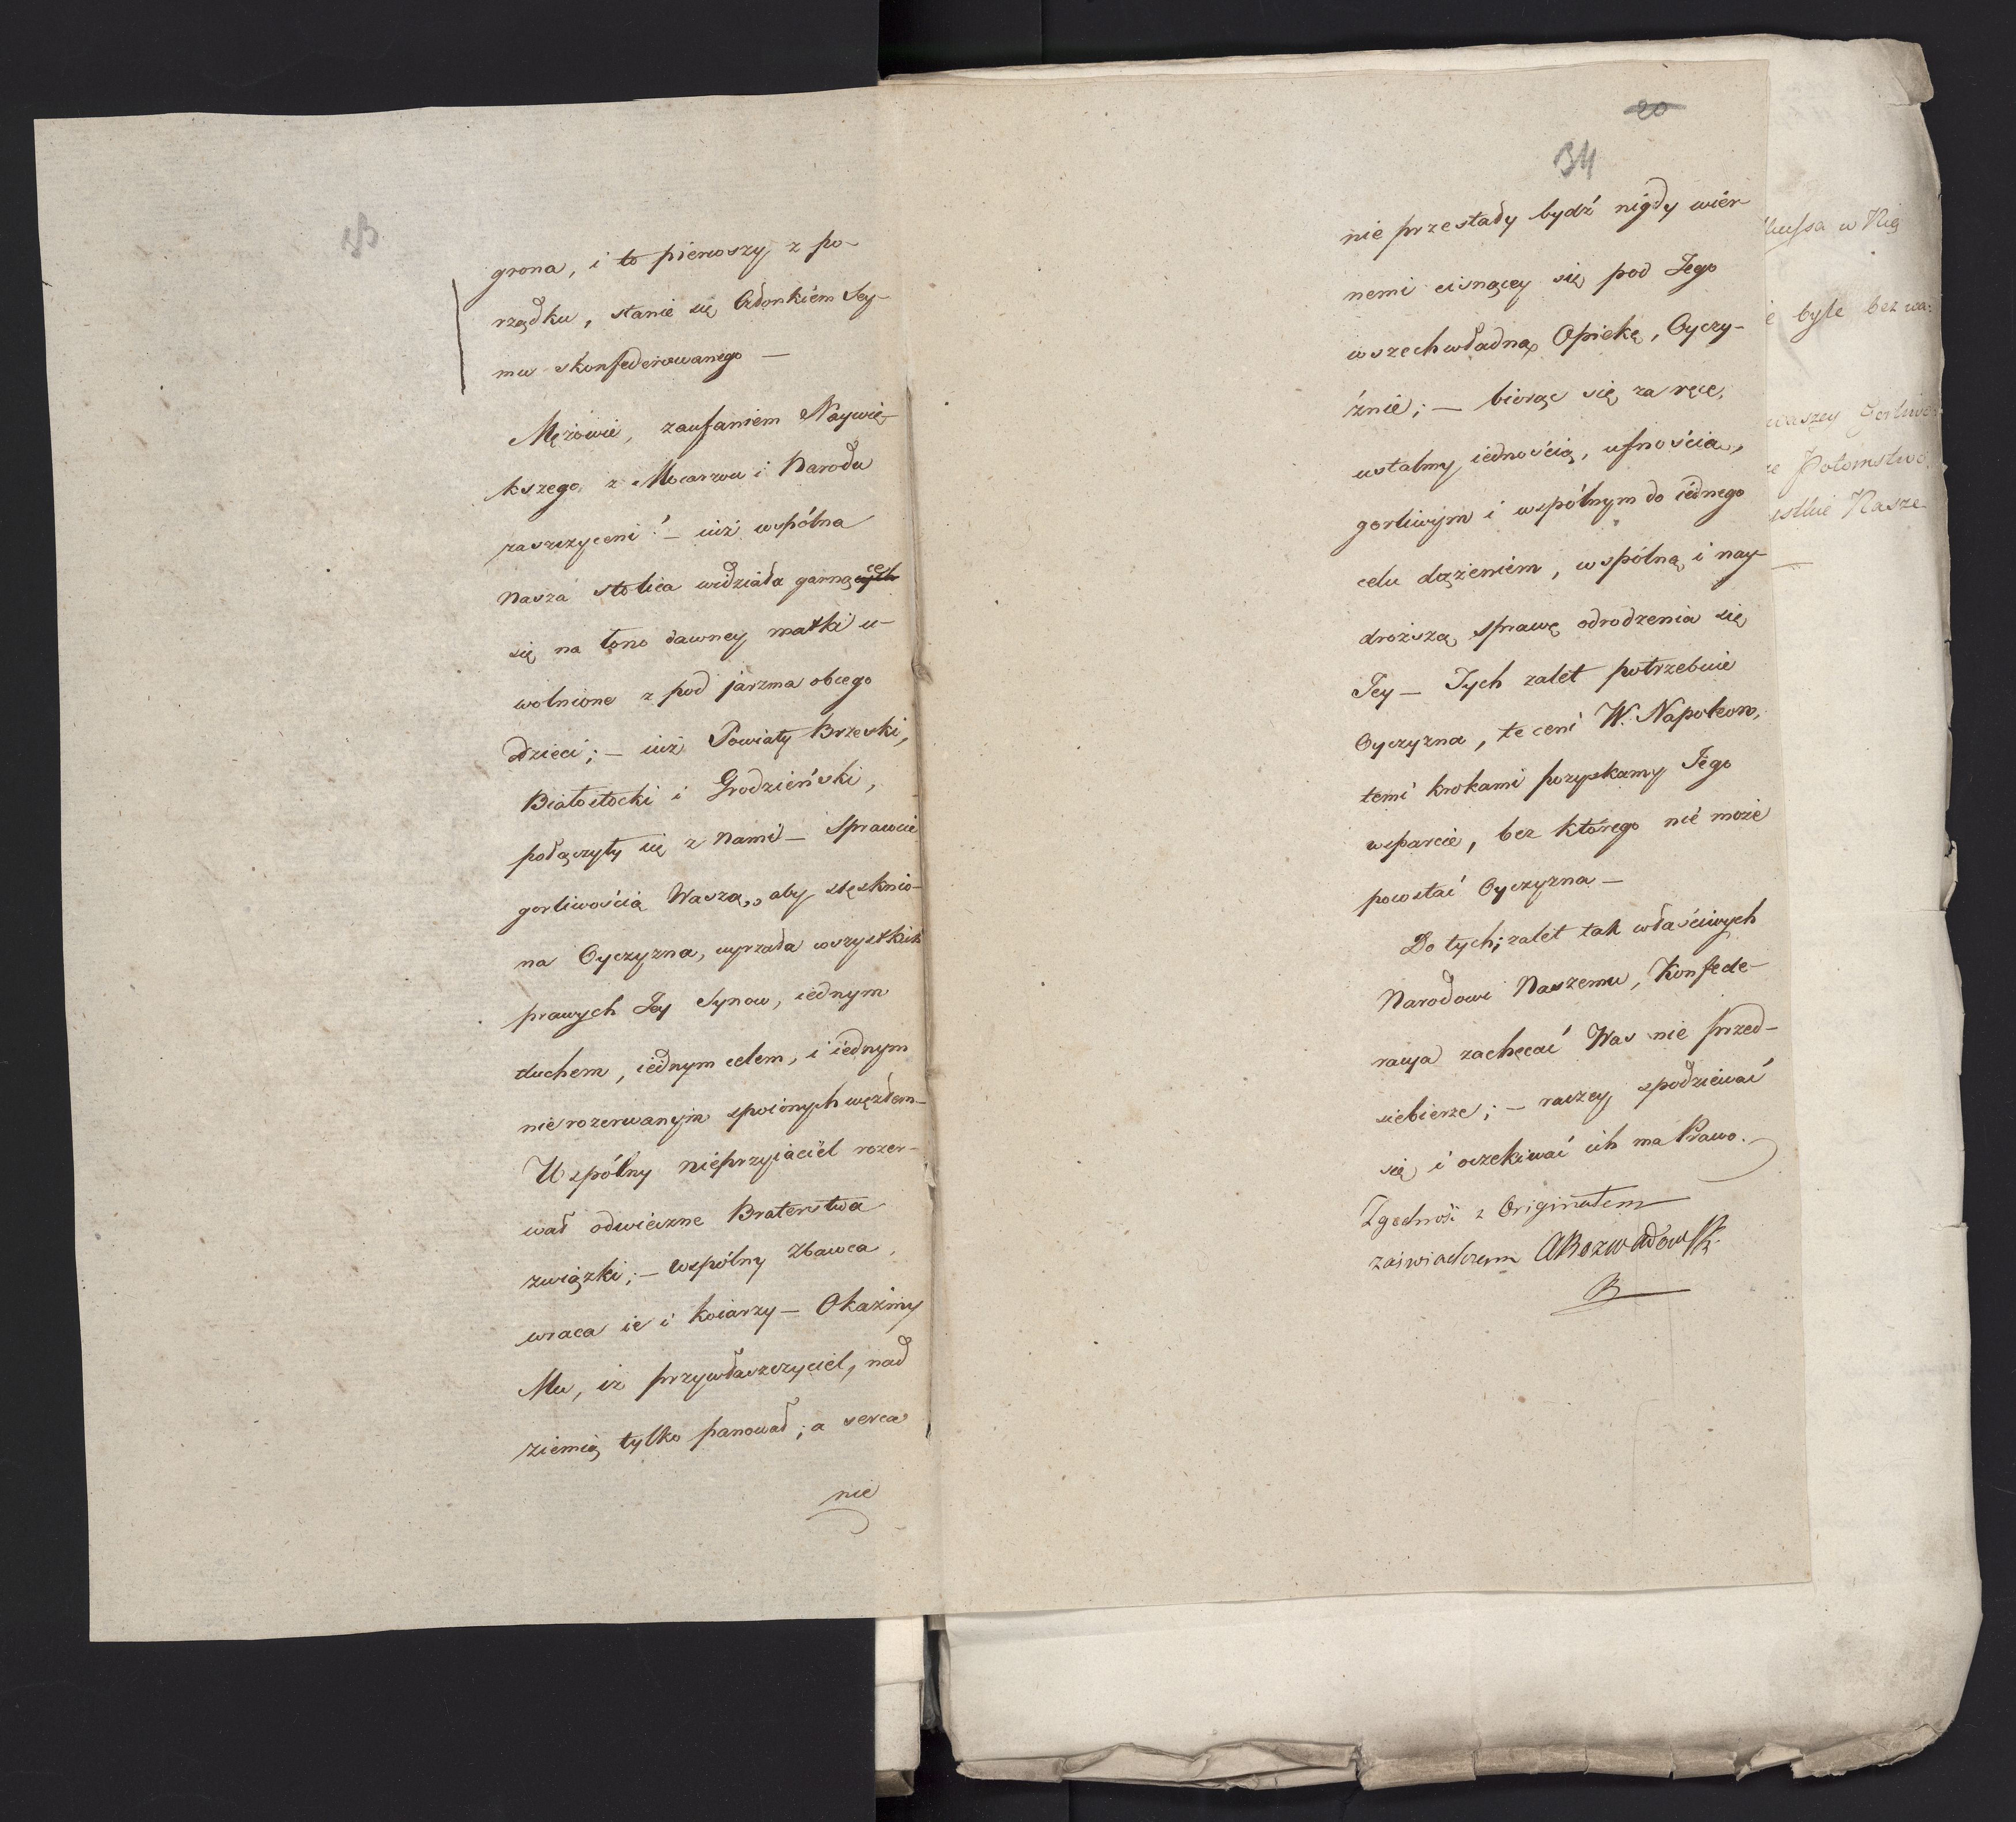 grona, i to pierwszy z po-
rządku, stanie się Członkiem Sey-
mu skonfederowanego —
Mężowie, zaufaniem Naywię-
kszego z Mocarzow i Narodu
zaszczyceni! — iuż wspólna
Nasza stolica widziała garnące
się na łono dawney matki u-
wolnione z pod jarzma obcego
dzieci; — iuż Powiaty Brzeski,
Białostocki i Grodzieński,
połączyły się z Nami — Sprawcie
gorliwością Waszą, aby stęsknio-
na Oyczyzna, uyrzała wszystkich
prawych Jey Synow, iednym
duchem, iednym celem, i iednym
nierozerwanym spoionych węzłem —
Wspólny nieprzyiaciel rozer-
wał odwieczne Braterstwa
związki; — wspólny Zbawca,
wraca ie i koiarzy — Okażmy
Mu, iż przywłaszczyciel, nad
ziemią tylko panował; a serca
nie
20
34
nie przestały bydź nigdy wier-
nemi cisnącey się pod Jego
wszechwładną Opiekę, Oyczy-
źnie; — biorąc się za ręce,
ustalmy iednością, ufnością,
gorliwym i wspólnym do iednego
celu dążeniem, wspólną i nay-
droższą sprawę odrodzenia się
Jey — Tych zalet potrzebuie
Oyczyzna, te ceni W. Napoleon,
temi krokami pozyskamy Jego
wsparcie, bez którego nie może
powstać Oyczyzna —
Do tych zalet tak właściwych
Narodowi Naszemu, Konfede-
racya zachęcać Was nie przed-
siebierze; — raczey spodziewać
się i oczekiwać ich ma Prawo.
Zgodność z Originałem
zaświadczam ARozwadowski
w Nię
byle bez wa-
waszey Gorliwo
Potomstwo
Nasze